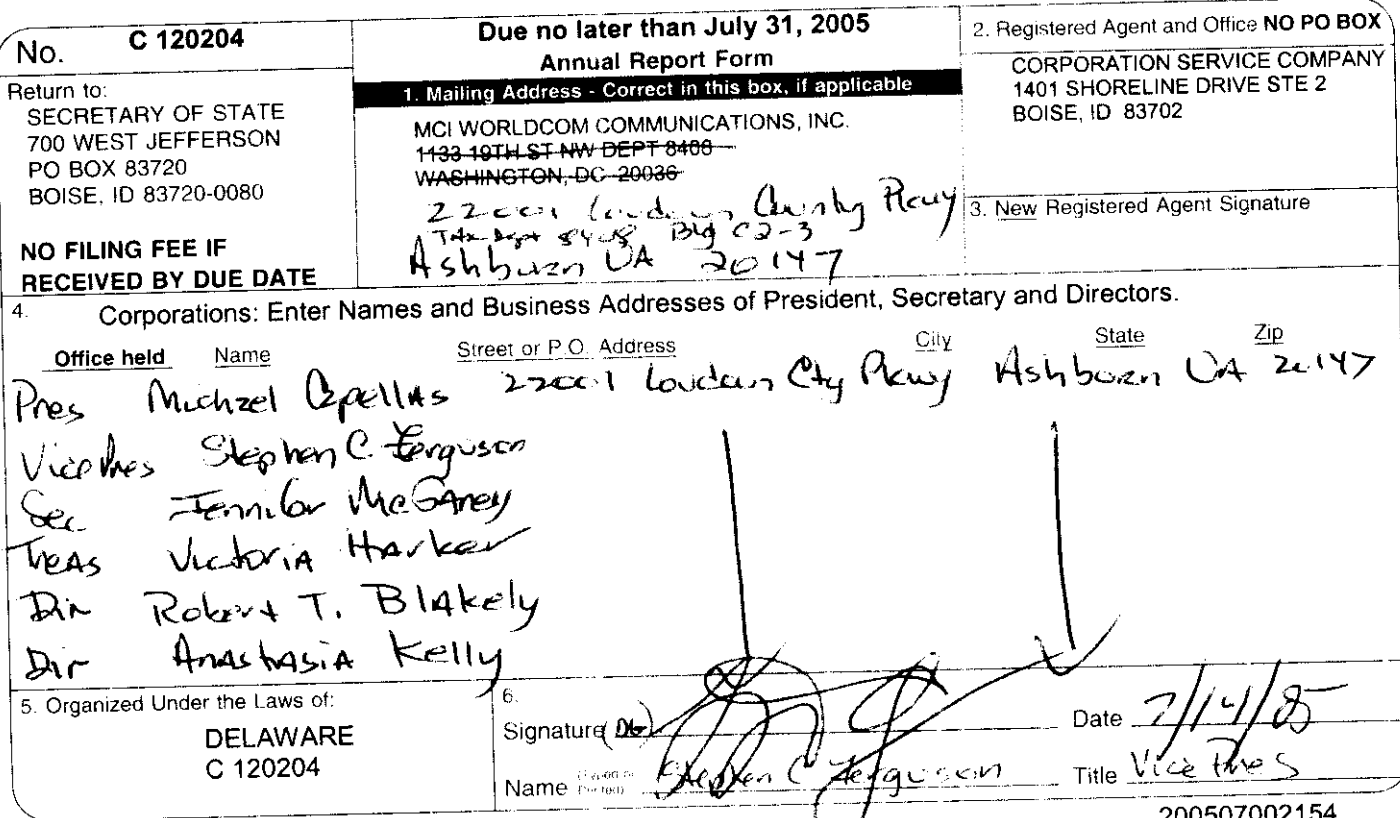 No. C 120204
Return to:
SECRETARY OF STATE
700 WEST JEFFERSON
PO BOX 83720
BOISE, ID 83720-0080
NO FILING FEE IF
RECEIVED BY DUE DATE
Due no later than July 31, 2005
Annual Report Form
1. Mailing Address - Correct in this box, if applicable
MCI WORLDCOM COMMUNICATIONS, INC.
1133 19TH ST NW DEPT 8408
WASHINGTON, DC 20036
22001 Loudoun County Pkwy
Tax Dept 8408 Bldg C2-3
Ashburn VA 20147
2. Registered Agent and Office NO PO BOX
CORPORATION SERVICE COMPANY
1401 SHORELINE DRIVE STE 2
BOISE, ID 83702
3. New Registered Agent Signature
4. Corporations: Enter Names and Business Addresses of President, Secretary and Directors.
Office held Name Street or P.O. Address City State Zip
Pres Michael Capellas 22001 Loudoun Cty Pkwy Ashburn VA 20147
Vice Pres Stephen C. Ferguson
Sec Jennifer McGarey
Treas Victoria Harker
Dir Robert T. Blakely
Dir Anastasia Kelly
5. Organized Under the Laws of:
DELAWARE
C 120204
6.
Signature Date 7/14/05
Name Stephen C Ferguson Title Vice Pres
200507002154